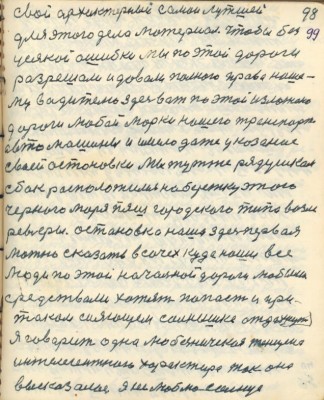 свой архектерний самой лутшей 98
для этого дела материал. Чтобы без 99
усякой ошибки мы по этой дороги
разрешаем и довам полного права наше-
му вадителю здесь ват по этой изложено
дороги любой марки нашего транспорт
авто машины и имело дате указание
своей остоновки мы тут же рядушкам
сбак расположимя на бережку этого
черного моря пляш городского типо возли
ревьери. остоновка наша здесь первая
можно сказать в сочех куда наши все
люди по этой начальной дороги любыми
средствами хотят попаст и при-
таком сияющем солнышке отдахнут)
Я говарит одна любеническая тищина
интелегентного характера так она
высказалас я не люблю солнце